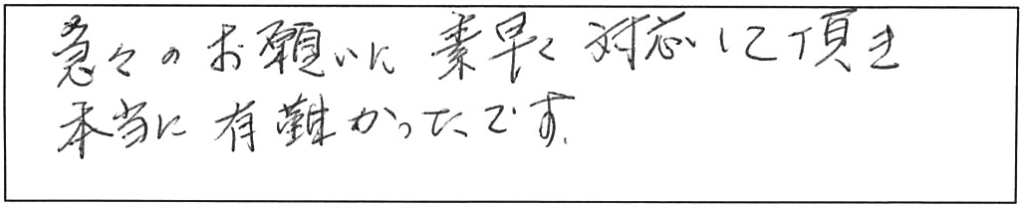 急々のお願いに素早く対応して頂き
本当に有難かったです.